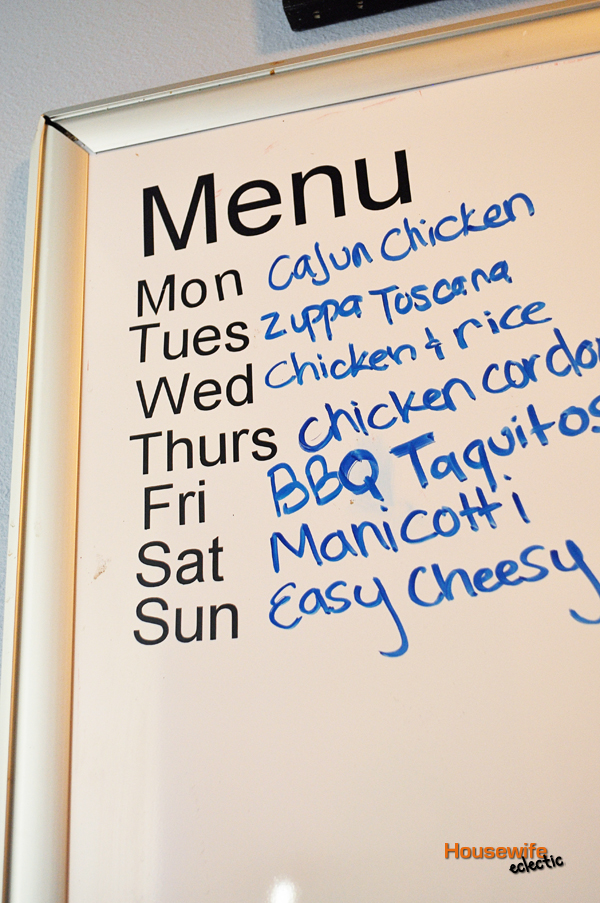 Menu
Mon Cajun Chicken
Tues Zuppa Toscana
Wed Chicken & rice
Thurs Chicken cordo
Fri BBQ Taquitos
Sat Manicotti
Sun Easy Cheesy
Housewife
eclectic